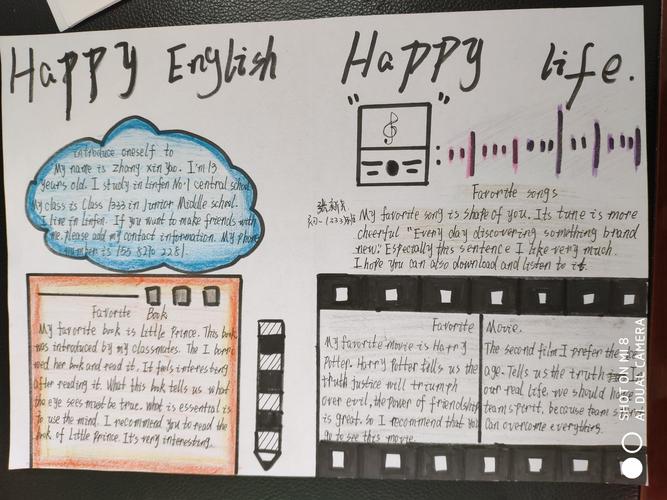 Happy English
Happy life.
introduce oneself to
My name is zhang xin yao. I'm 13
years old. I study in linfen No.1 central school
My class is Class 1333 in Junior Middle school.
I live in Linfen. If you want to make friends with
me, please add my contact information. My phone
number is 155 8210 2281.
Favorite songs
My favorite song is shape of you. Its tune is more
cheerful "Every day discovering something brand
new." Especially this sentence I like very much.
I hope you can also download and listen to it.
Favorite Book
My favorite book is Little Prince. This book
was introduced by my classmates. The I borro
wed her book and read it. It feels interesting
after reading it. What this book tells us what
the eye sees must be true. What is essential is
To use the mind. I recommend you to read the
book of Little prince. It's very interesting.
Favorite Movie.
My favorite movie is Harry
Potter. Harry Potter tells us the
truth Justice will triumph
over evil, the power of friendship
is great. so I recommend that you
go to see this movie.
The second film I prefer the
age. Tells us the truth
our real life, we should
team spirit, because team
can overcome everything.
SHOT ON MI 8
AI DUAL CAMERA